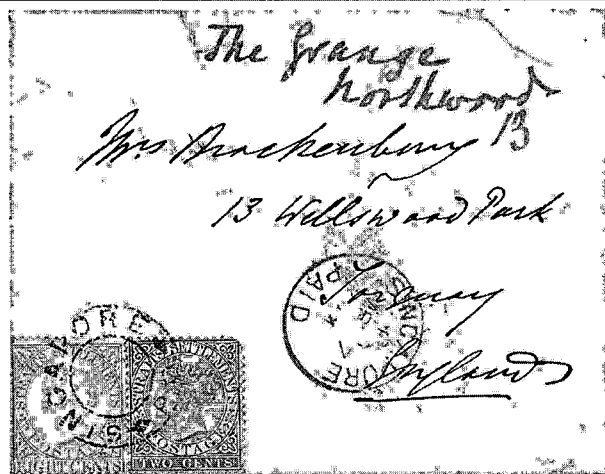 The Grange
Northwood
13
Mrs Brackenbury
13 Wellswood Park
Torquay
England
SINGAPORE
PAID
SINGAPORE
STRAITS SETTLEMENTS
POSTAGE
EIGHT CENTS
POSTAGE
TWO CENTS